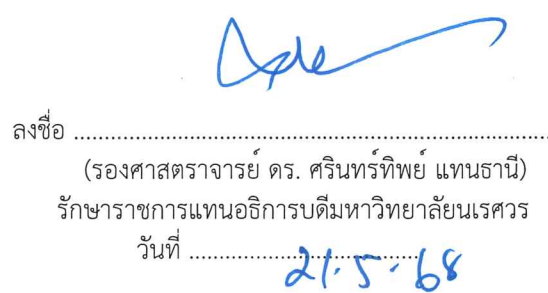 ลงชื่อ ........................................................................
(รองศาสตราจารย์ ดร. ศรินทร์ทิพย์ แทนธานี)
รักษาราชการแทนอธิการบดีมหาวิทยาลัยนเรศวร
วันที่ ................................... 21.5.68